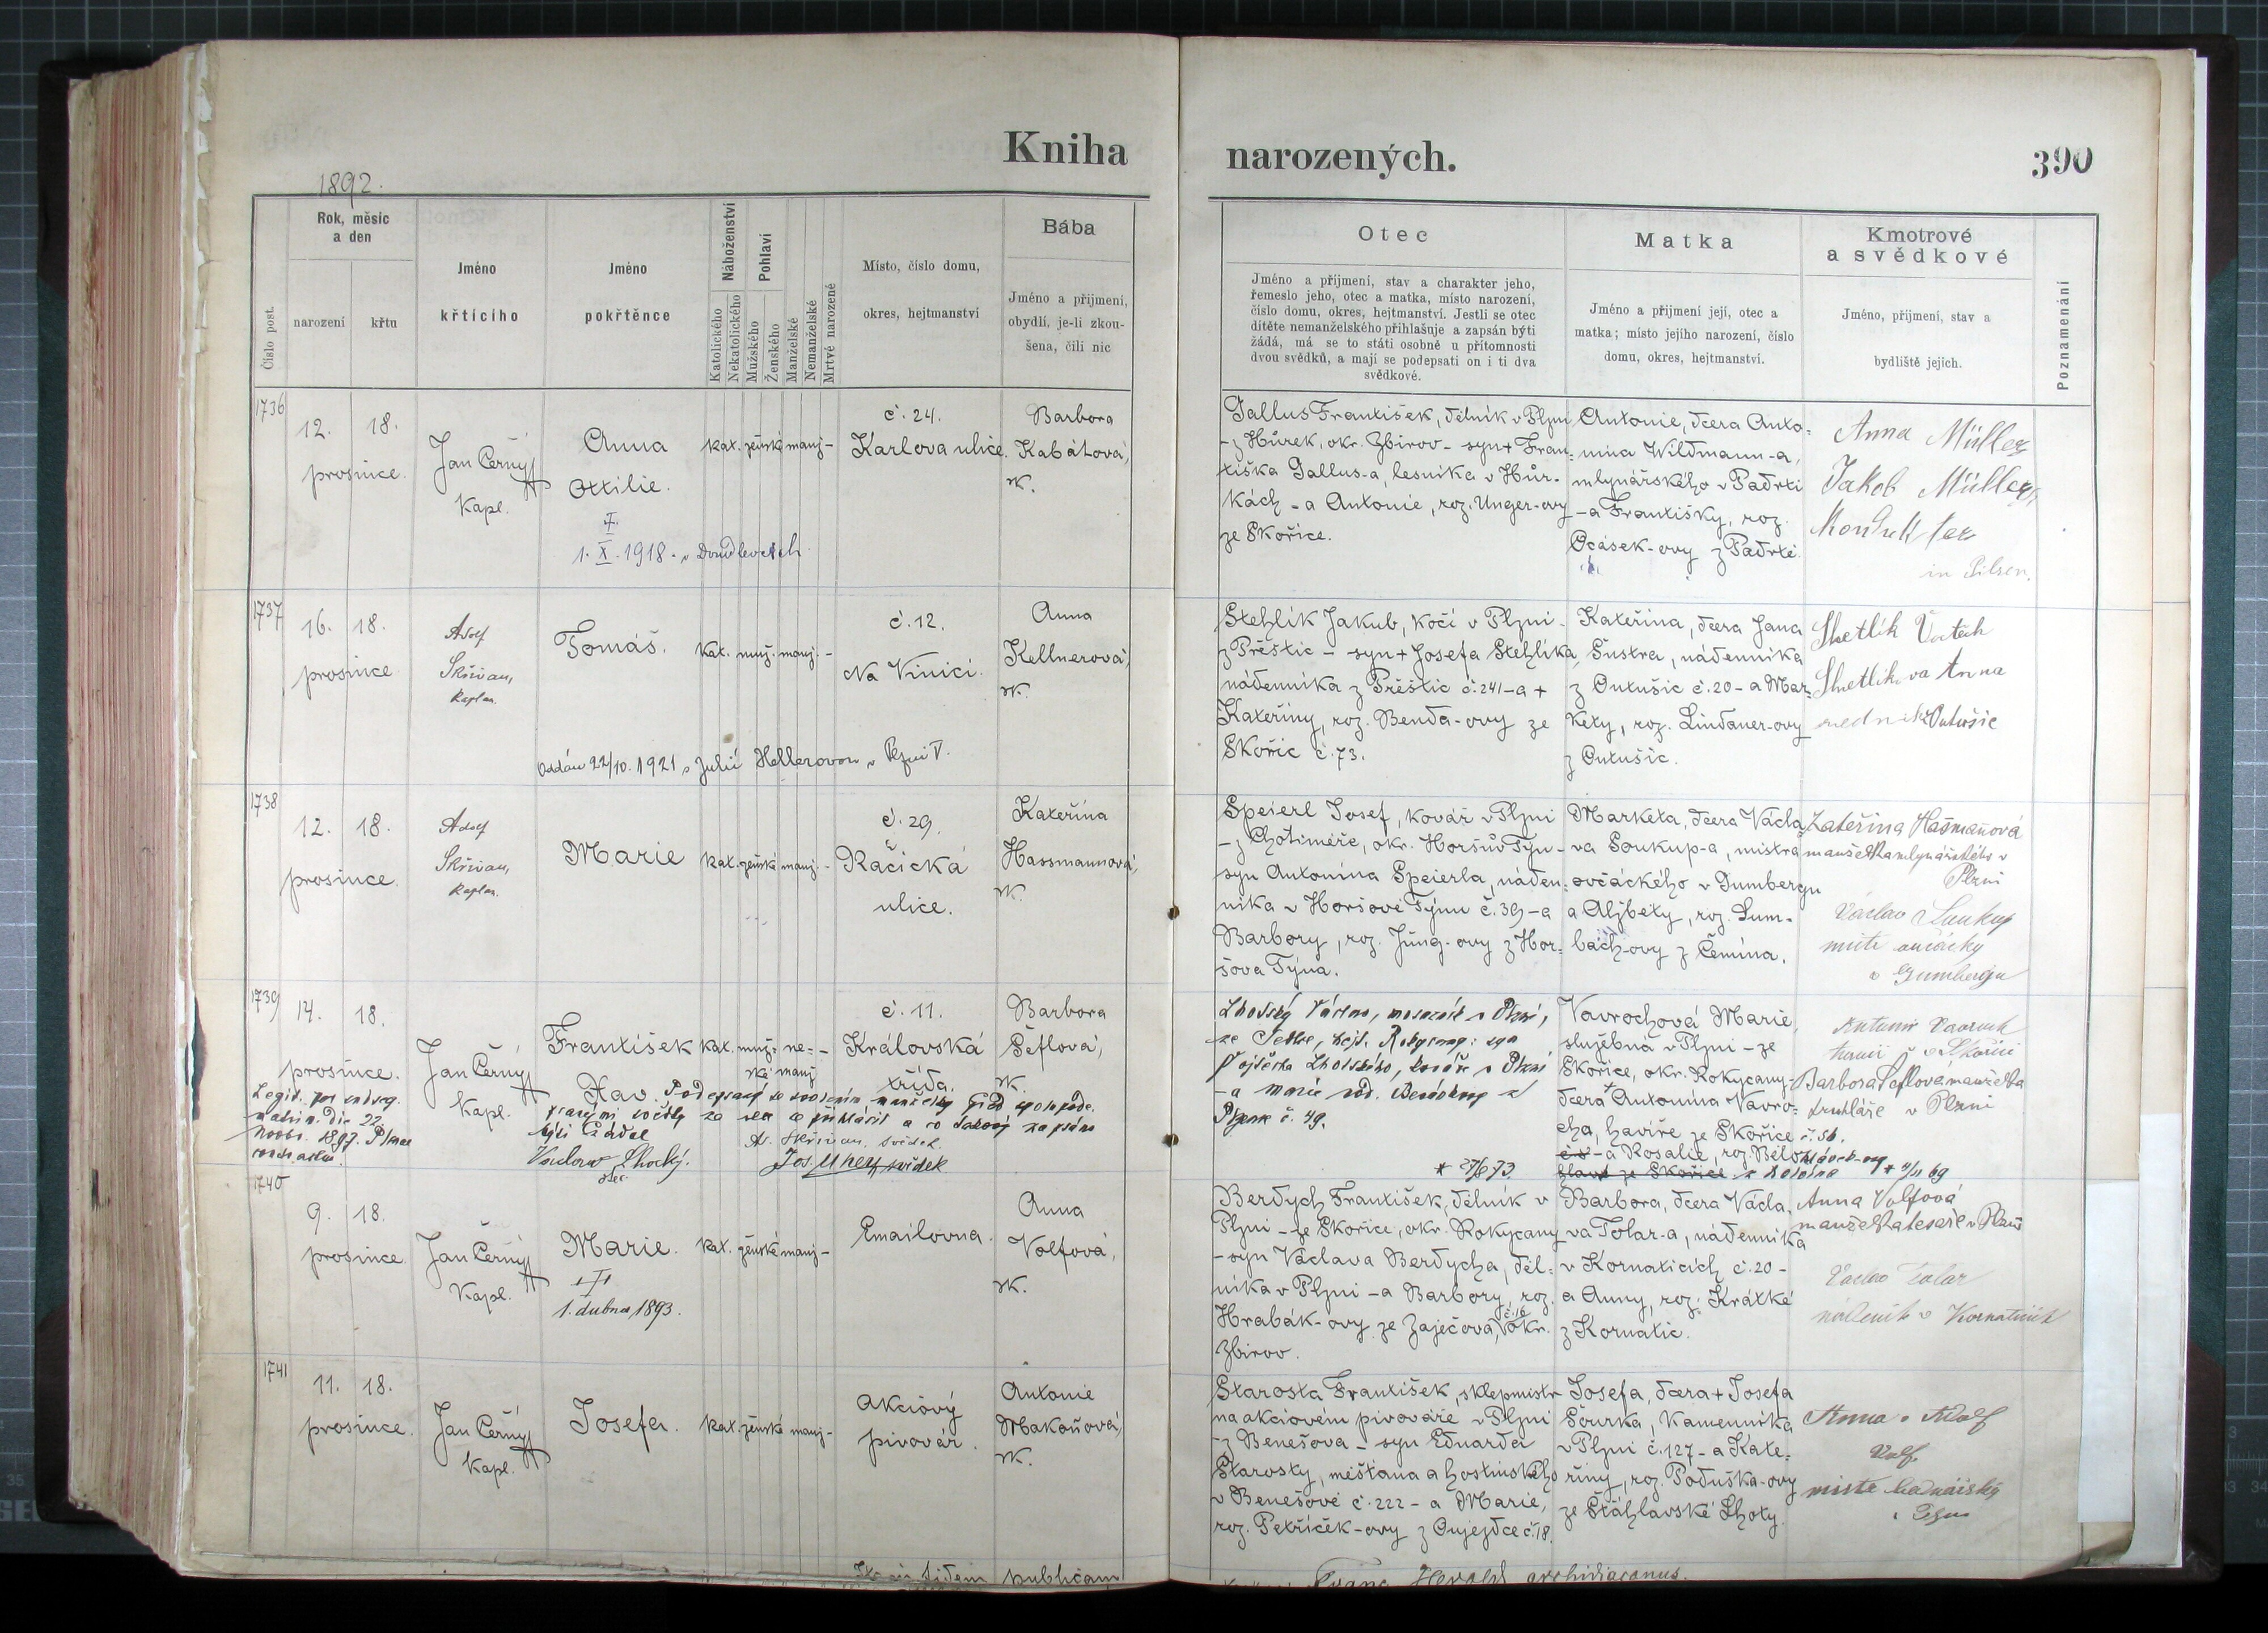 Kniha
narozených.
390
1892.
Číslo post.
Rok, měsíc
a den
narození
křtu
Jméno
křtícího
Jméno
pokřtěnce
Náboženství
Katolického
Nekatolického
Pohlaví
Mužského
Ženského
Manželské
Nemanželské
Mrtvě narozené
Místo, číslo domu,
okres, hejtmanství
Bába
Jméno a příjmení,
obydlí, je-li zkou-
šena, čili nic
Otec
Jméno a příjmení, stav a charakter jeho,
řemeslo jeho, otec a matka, místo narození,
číslo domu, okres, hejtmanství. Jestli se otec
dítěte nemanželského přihlašuje a zapsán býti
žádá, má se to státi osobně u přítomnosti
dvou svědků, a mají se podepsati on i ti dva
svědkové.
Matka
Jméno a příjmení její, otec a
matka; místo jejího narození, číslo
domu, okres, hejtmanství.
Kmotrové
a svědkové
Jméno, příjmení, stav a
bydliště jejich.
Poznamenání
1736
12. 18.
prosince.
Jan Černý
Kapl.
Anna
Ottilie.
1. X. 1918 v Doudlevcích
kat. ženské manž-
č. 24.
Karlova ulice.
Barbora
Kabátová,
zk.
Gallus František, dělník v Plzni
- z Hůrek, okr. Zbirov - syn + Fran-
tiška Gallus-a, lesníka v Hůr-
kách - a Antonie, roz. Unger-ovy
ze Skořice.
Antonie, dcera Anto-
nína Wildmann-a,
mlynářského v Padrti
- a Františky, roz.
Ocásek-ovy z Padrtě.
Anna Müller
Jakob Müller,
in Pilsen.
1737
16. 18.
prosince
Adolf
Skřivan,
kaplan.
Tomáš.
kat. muž. manž. -
č. 12.
Na Vinici.
Anna
Kellnerová,
zk.
Oddán 22/10. 1921 s Julií Hellerovou v Plzni V.
Stehlík Jakub, kočí v Plzni -
z Přeštic - syn + Josefa Stehlíka,
nádenníka z Přeštic č. 241 - a +
Kateřiny, roz. Benda-ovy ze
Skořic č. 73.
Kateřina, dcera Jana
Šustra, nádenníka
z Outušic č. 20 - a Mar-
kety, roz. Lindauer-ovy
z Outušic.
Anna
Outušic
1738
12. 18.
prosince.
Adolf
Skřivan,
kaplan.
Marie
kat. ženské manž. -
č. 29.
Račická
ulice.
Kateřina
Hassmannová,
zk.
Speierl Josef, kovář v Plzni
- z Chotiměře, okr. Horšův Týn -
syn Antonína Speierla, náden-
níka v Horšově Týnu č. 39 - a
Barbory, roz. Jung-ovy z Hor-
šova Týna.
Marketa, dcera Václa-
va Soukup-a, mistra
ovčáckého v Gumbergu
a Alžběty, roz. Lum-
bach-ovy z Čemína.
Kateřina Hašmanová
manželka mlynářského v
Plzni
Václav Soukup
mistr ovčácký
v Gumbergu
1739
14. 18.
prosince.
Jan Černý
Kapl.
František
kat. muž- ne- -
ské manž
č. 11.
Královská
třída.
Barbora
Šeflová,
zk.
Václav Lhocký.
otec
Ad. Skřivan, svědek
svědek
Lhotský Václav, mosazník v Plzni,
Vojtěcha Lhotského, kováře v Plzni
- a Marie
Plzně č. 49.
* 27/6 73
Vavrochová Marie,
služebná v Plzni - ze
Skořice, okr. Rokycany-
dcera + Antonína Vavro-
cha, havíře ze Skořice č. 56.
- a Rosalie, roz. Bělohlávek-ovy
Antonín Vavroch
Barbora Šeflová manželka
truhláře v Plzni
1740
9. 18.
prosince.
Jan Černý
Kapl.
Marie.
1. dubna 1893.
kat. ženské manž-
Emailovna.
Anna
Volfová,
zk.
Berdych František, dělník v
Plzni - ze Skořice, okr. Rokycany
- syn Václava Berdycha, děl-
níka v Plzni - a Barbory, roz.
Hrabák-ovy ze Zaječova, č. 16 okr.
Zbirov.
Barbora, dcera Václa-
va Tolar-a, nádenníka
v Kornaticích č. 20 -
a Anny, roz. Krátké
z Kornatic.
Anna Volfová
manželka tesaře v Plzni
Václav Tolar
nádeník v Kornaticích
1741
11. 18.
prosince.
Jan Černý
Kapl.
Josefa.
kat. ženské manž-
Akciový
pivovár.
Antonie
Makoňová,
zk.
Starosta František, sklepmistr
na akciovém pivováře v Plzni
- z Benešova - syn Eduarda
Starosty, měšťana a hostinského
v Benešově č. 222 - a Marie,
roz. Petříček-ovy z Oujezdce č. 18.
Josefa, dcera + Josefa
Šourka, kamenníka
v Plzni č. 127 - a Kate-
řiny, roz. Poduška-ovy
ze Šťáhlavské Lhoty.
Anna a Adolf
Volf
mistr bednářský
v Plzni
fidem publicam
Franc. Herold archidiaconus.